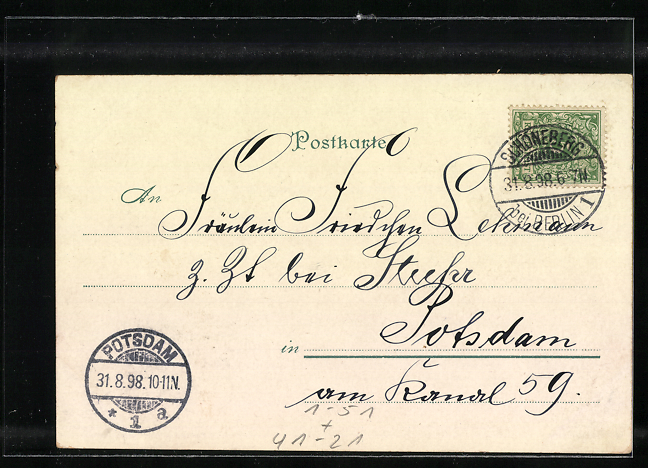 Postkarte
SCHÖNEBERG
31.8.98.6-7N.
bei BERLIN 1
An Fräulein Friedchen Lehmann
z. Zt bei Steehr
in Potsdam
am Kanal 59.
POTSDAM
31.8.98.10-11N.
* 1 a
1-51
+
41-21